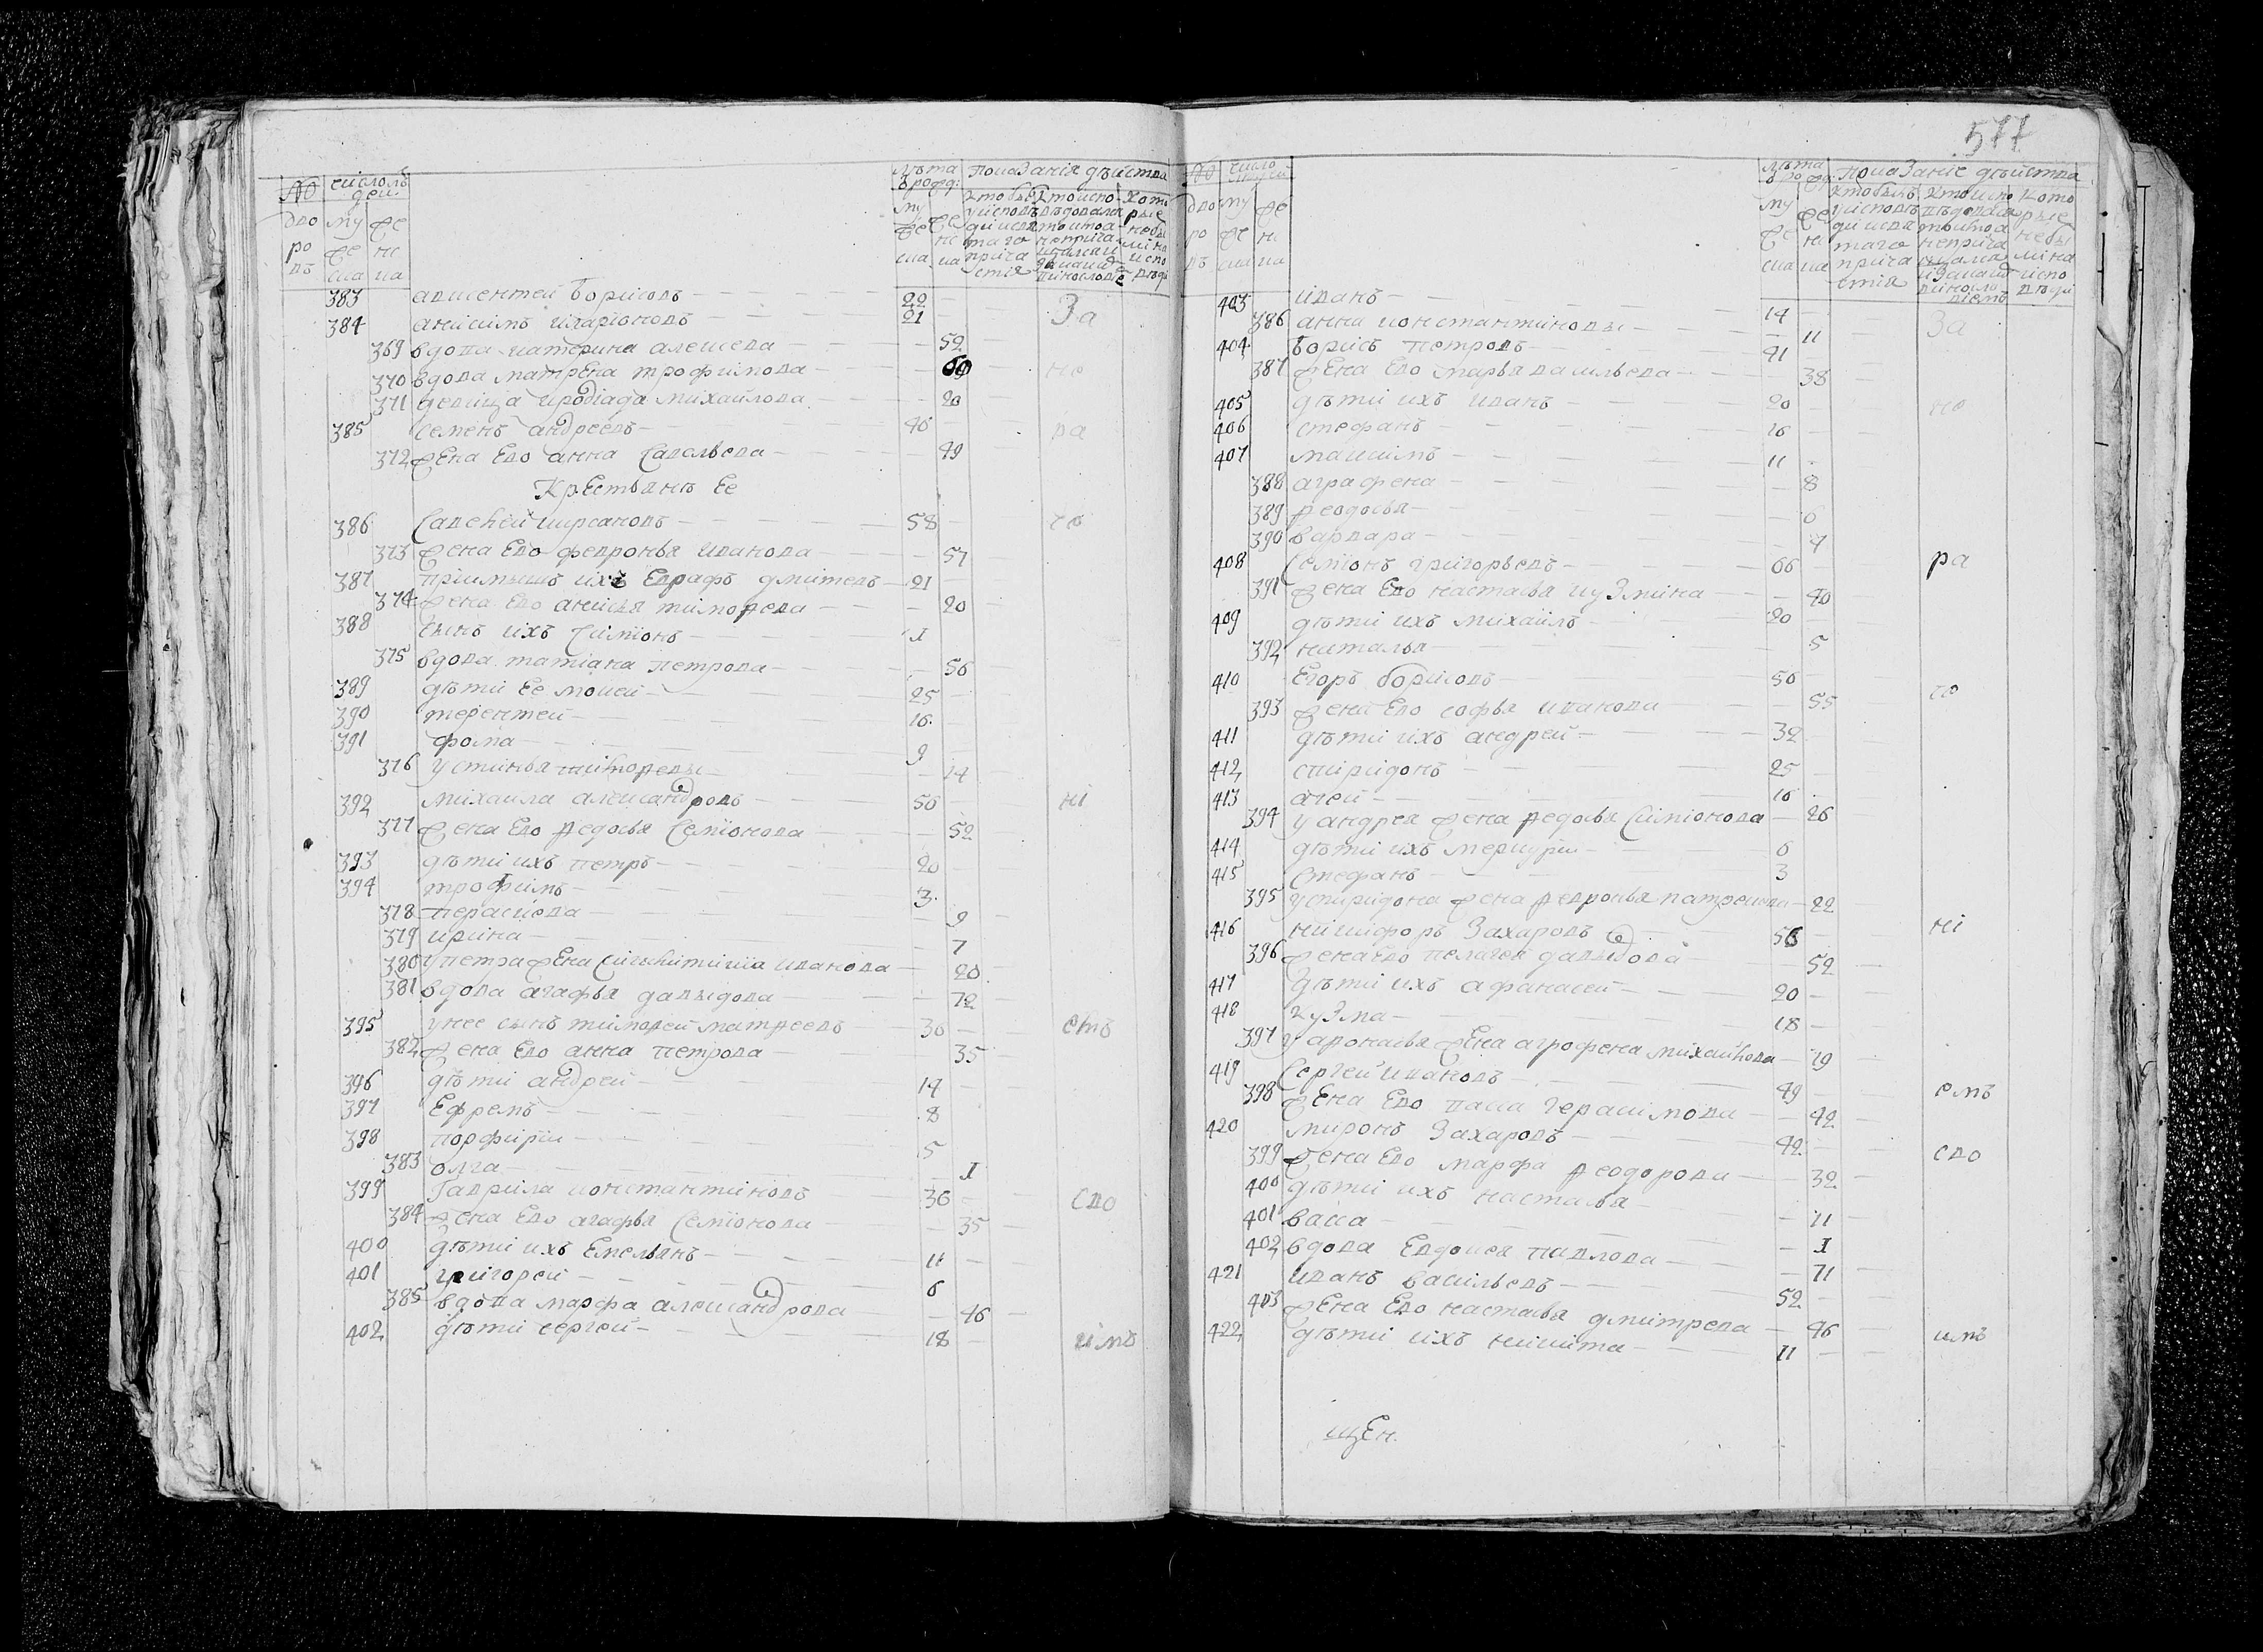 577
№
дворовъ
число людей
мужеска
женска
лѣта
показаніе дѣйства
383 авксентей борисовъ 22
384 анисимъ иларіоновъ 21 За
369 вдова катерина алексева 52
370 вдова матрена трофимова но
371 девица иродіада михайлова 20
385 семенъ андреевъ 46 ра
372 жена Ево анна Савельева 49
Крестьянъ Ее
386 Савелей кирсановъ 58 го
373 жена Ево февронья Иванова 57
387 пріимышъ ихъ Евграфъ дмитевъ 21
374 жена Ево анисья тимофеева 20
388 сынъ ихъ Симіонъ 1
375 вдова татіана петрова 56
389 дѣти Ее мокей 25
390 терентей 16
391 фома 9
376 устинья 14
392 михаила александровъ 56 ні
377 жена Ево федосья Семіонова 52
393 дѣти ихъ петръ 20
394 трофимъ 3
378 парасковя 9
379 ирина 7
380 у петра жена Сигклитикия иванова 20
381 вдова агафья давыдова 72
395 у нее сынъ тимофей матфеевъ 36 емъ
382 жена Ево анна петрова 35
396 дѣти андрей 14
397 Ефремъ 8
398 порфирій 5
383 олга 1
399 Гаврила константиновъ 36 сло
384 жена Ево агафья Семіонова 35
400 дѣти ихъ Емельянъ 11
401 григорей 6
385 вдова марфа александрова 46
402 дѣти сергей 18 имъ
№
дворовъ
число людей
мужеска
женска
лѣта
показаніе дѣйства
403 иванъ 14
386 анна константиновы 11 За
404 борисъ петровъ 41
387 жена Ево марья васильева 38
405 дѣти ихъ иванъ 20 но
406 стефанъ 16
407 максимъ 11
388 аграфена 8
389 феодосья 6
390 варвара 4
408 Семіонъ григорьевъ 66 ра
391 жена Ево настасья кузмина 40
409 дѣти ихъ михаилъ 20
392 наталья 5
410 Егоръ борисовъ 56 го
393 жена Ево софья иванова 55
411 дѣти ихъ андрей 32
412 спиридонъ 25
413 агей 16
394 у андрея жена федосья Симіонова 26
414 дѣти ихъ меркурій 6
415 стефанъ 3
395 у спиридона жена февронья патрекева 22
416 никифоръ Захаровъ ні
396 жена Ево пелагея давыдова 52
417 дѣти ихъ афанасей 20
418 кузма 18
397 у афонасья жена агрофена михайлова 19
419 Сергей ивановъ 49 емъ
398 жена Ево васа герасимова 42
420 миронъ Захаровъ 42 сло
399 жена Ево марфа феодорова 32
400 дѣти ихъ настасья 11
401 васса 1
402 вдова Евдокея павлова 71
421 иванъ васильевъ 52
403 жена Ево настасья дмитрева 46 имъ
422 дѣти ихъ никита 11
щЕн.